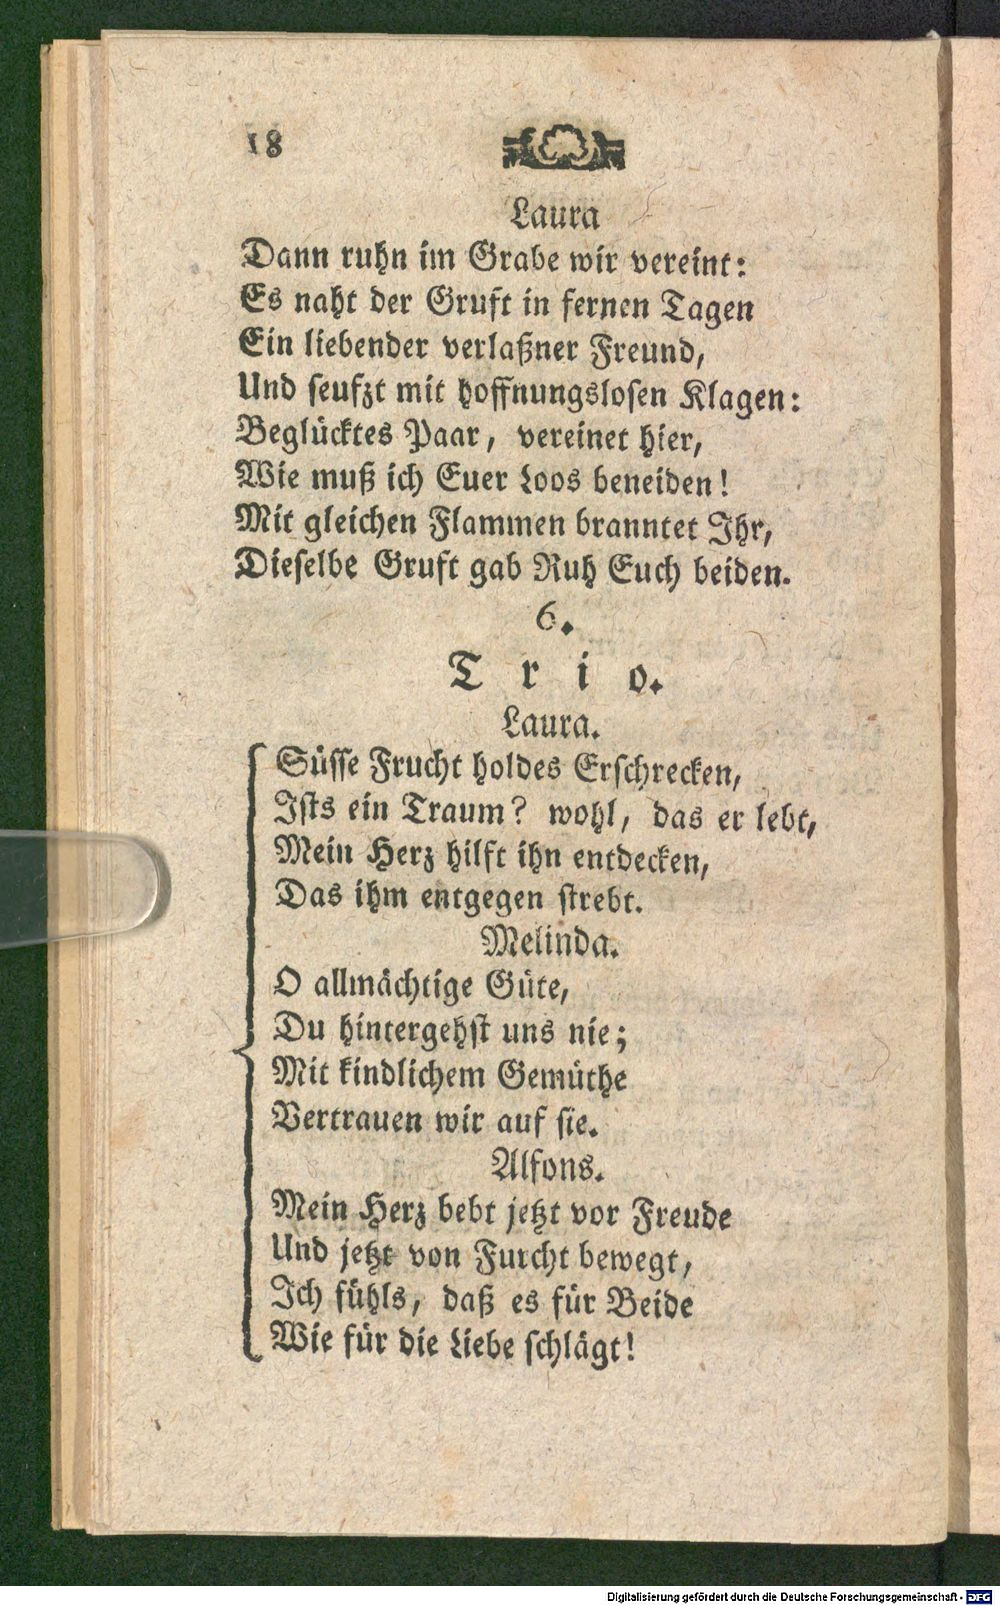 18
Laura
Dann ruhn im Grabe wir vereint:
Es naht der Gruft in fernen Tagen
Ein liebender verlaßner Freund,
Und seufzt mit hoffnungslosen Klagen:
Beglücktes Paar, vereinet hier,
Wie muß ich Euer Loos beneiden!
Mit gleichen Flammen branntet Ihr,
Dieselbe Gruft gab Ruh Euch beiden.
6.
Trio.
Laura.
Süsse Frucht holdes Erschrecken,
Ists ein Traum? wohl, das er lebt,
Mein Herz hilft ihn entdecken,
Das ihm entgegen strebt.
Melinda.
O allmächtige Güte,
Du hintergehst uns nie;
Mit kindlichem Gemüthe
Vertrauen wir auf sie.
Alfons.
Mein Herz bebt jetzt vor Freude
Und jetzt von Furcht bewegt,
Ich fühls, daß es für Beide
Wie für die Liebe schlägt!
Digitalisierung gefördert durch die Deutsche Forschungsgemeinschaft - DFG